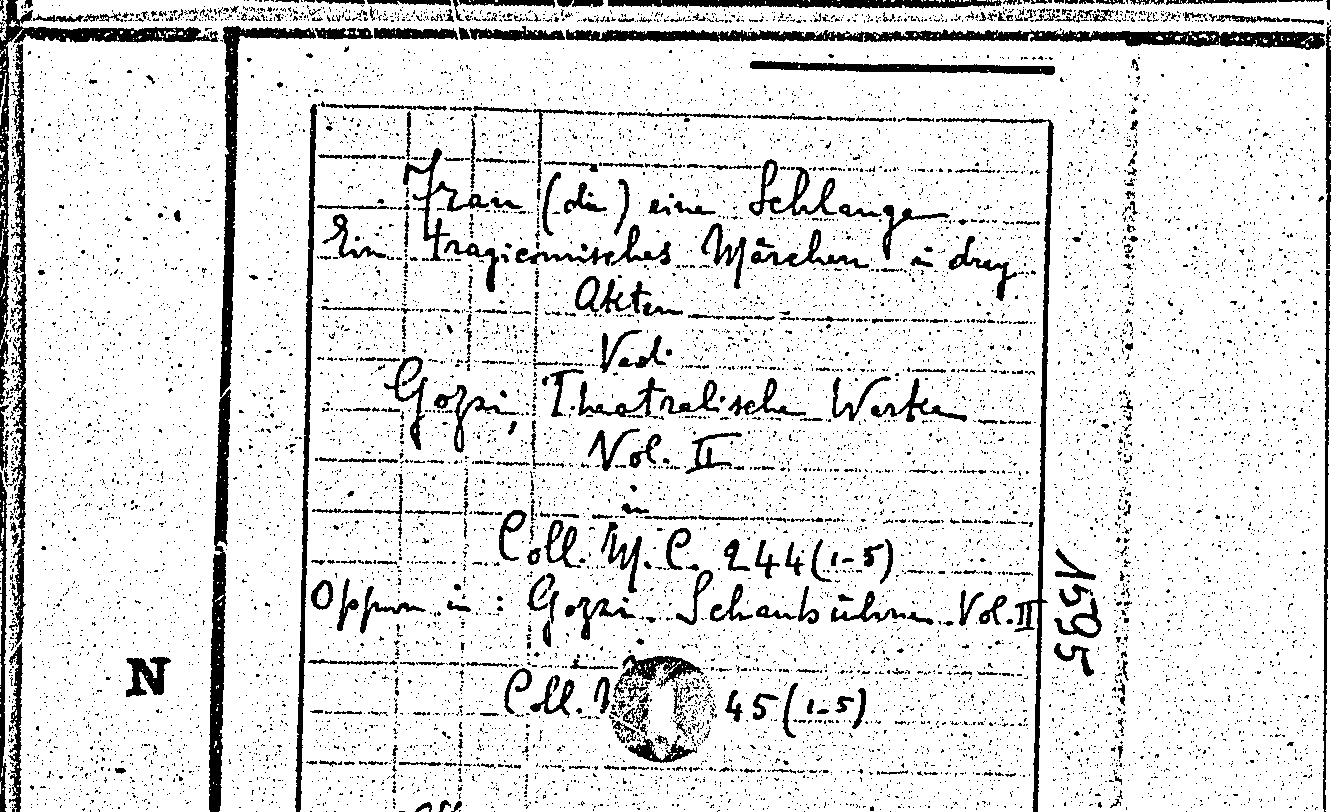 Frau (die) eine Schlange.
Ein tragicomisches Märchen in drey
Akten
Vedi
Gozzi, Theatralische Werke
Vol. II
in
Coll. M. C. 244 (1-5)
Oppure in : Gozzi. Schaubühne. Vol. II
in
Coll. 45 (1-5)
N
1595